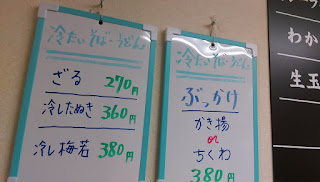 冷たいそば・うどん
ざる 270円
冷したぬき 360円
冷し梅若 380円
冷たいそば・うどん
ぶっかけ
かき揚
or
ちくわ
380円
わか
生玉